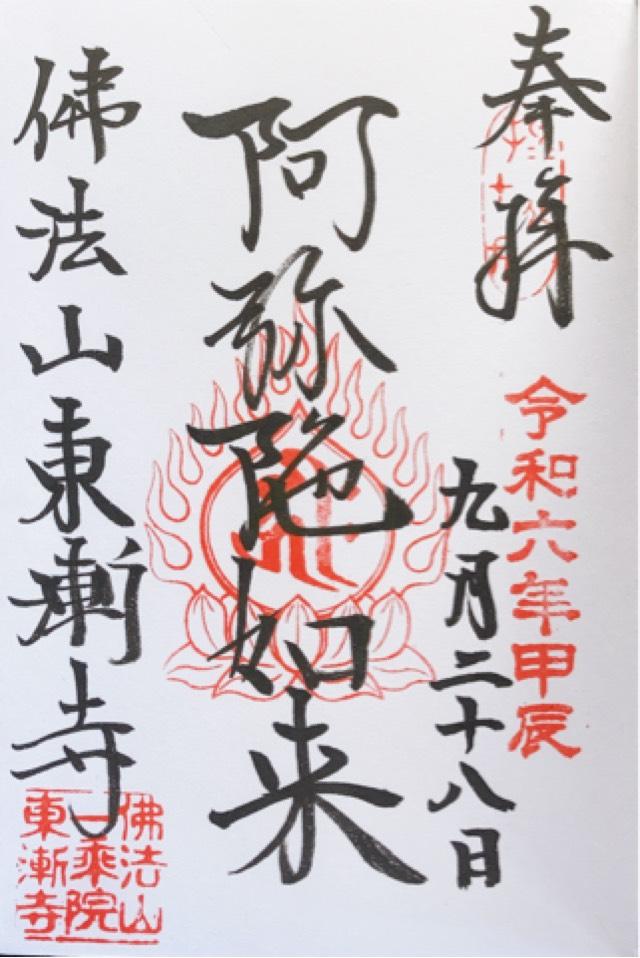 奉拜
令和六年甲辰
九月二十八日
阿弥陀如来
佛法山東漸寺
佛法山
一乘院
東漸寺